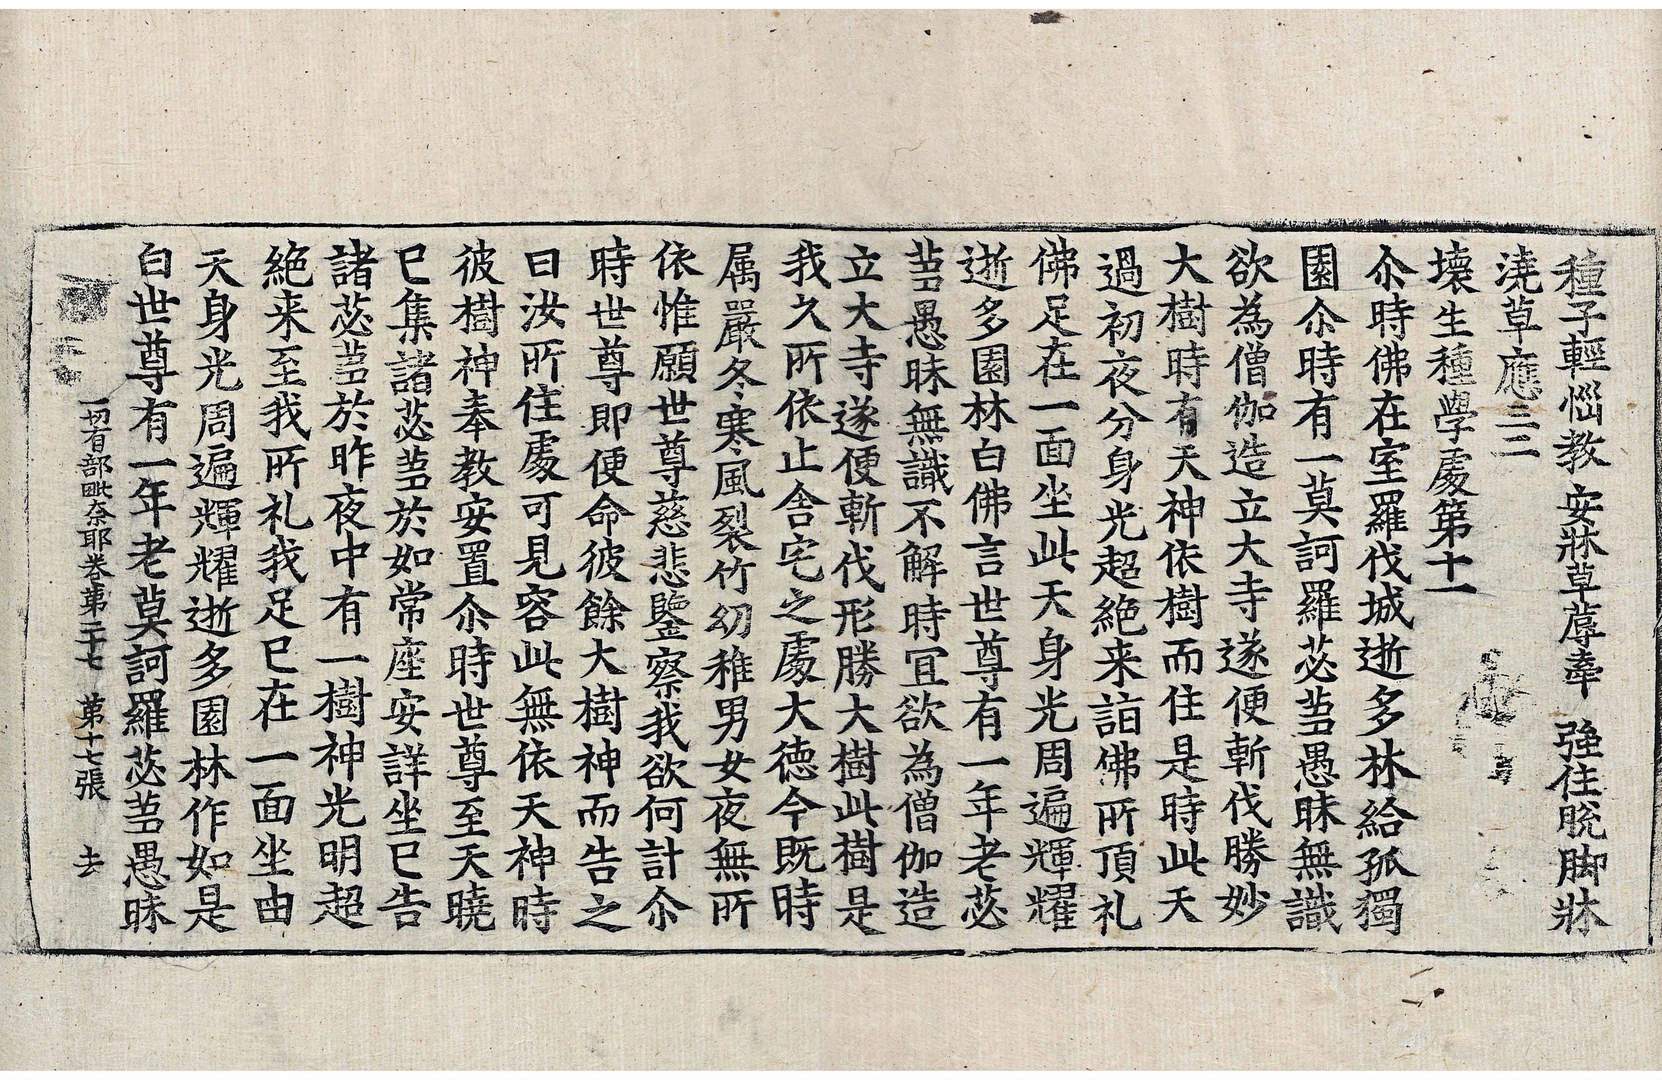 種子輕惱教 安牀草蓐牽 強住脫脚牀
澆草應三二
壞生種學處第十一
尒時佛在室羅伐城逝多林給孤獨
園尒時有一莫訶羅苾芻愚昧無識
欲為僧伽造立大寺遂便斬伐勝妙
大樹時有天神依樹而住是時此天
過初夜分身光超絶来詣佛所頂礼
佛足在一面坐此天身光周遍輝耀
逝多園林白佛言世尊有一年老苾
芻愚昧無識不解時宜欲為僧伽造
立大寺遂便斬伐形勝大樹此樹是
我久所依止舍宅之處大德今既時
属嚴冬寒風裂竹幼稚男女夜無所
依惟願世尊慈悲鑒察我欲何計尒
時世尊即便命彼餘大樹神而告之
曰汝所住處可見容此無依天神時
彼樹神奉教安置尒時世尊至天曉
已集諸苾芻於如常座安詳坐已告
諸苾芻於昨夜中有一樹神光明超
絶来至我所礼我足已在一面坐由
天身光周遍輝耀逝多園林作如是
白世尊有一年老莫訶羅苾芻愚昧
一切有部毗奈耶卷第二十七 第十七張 去